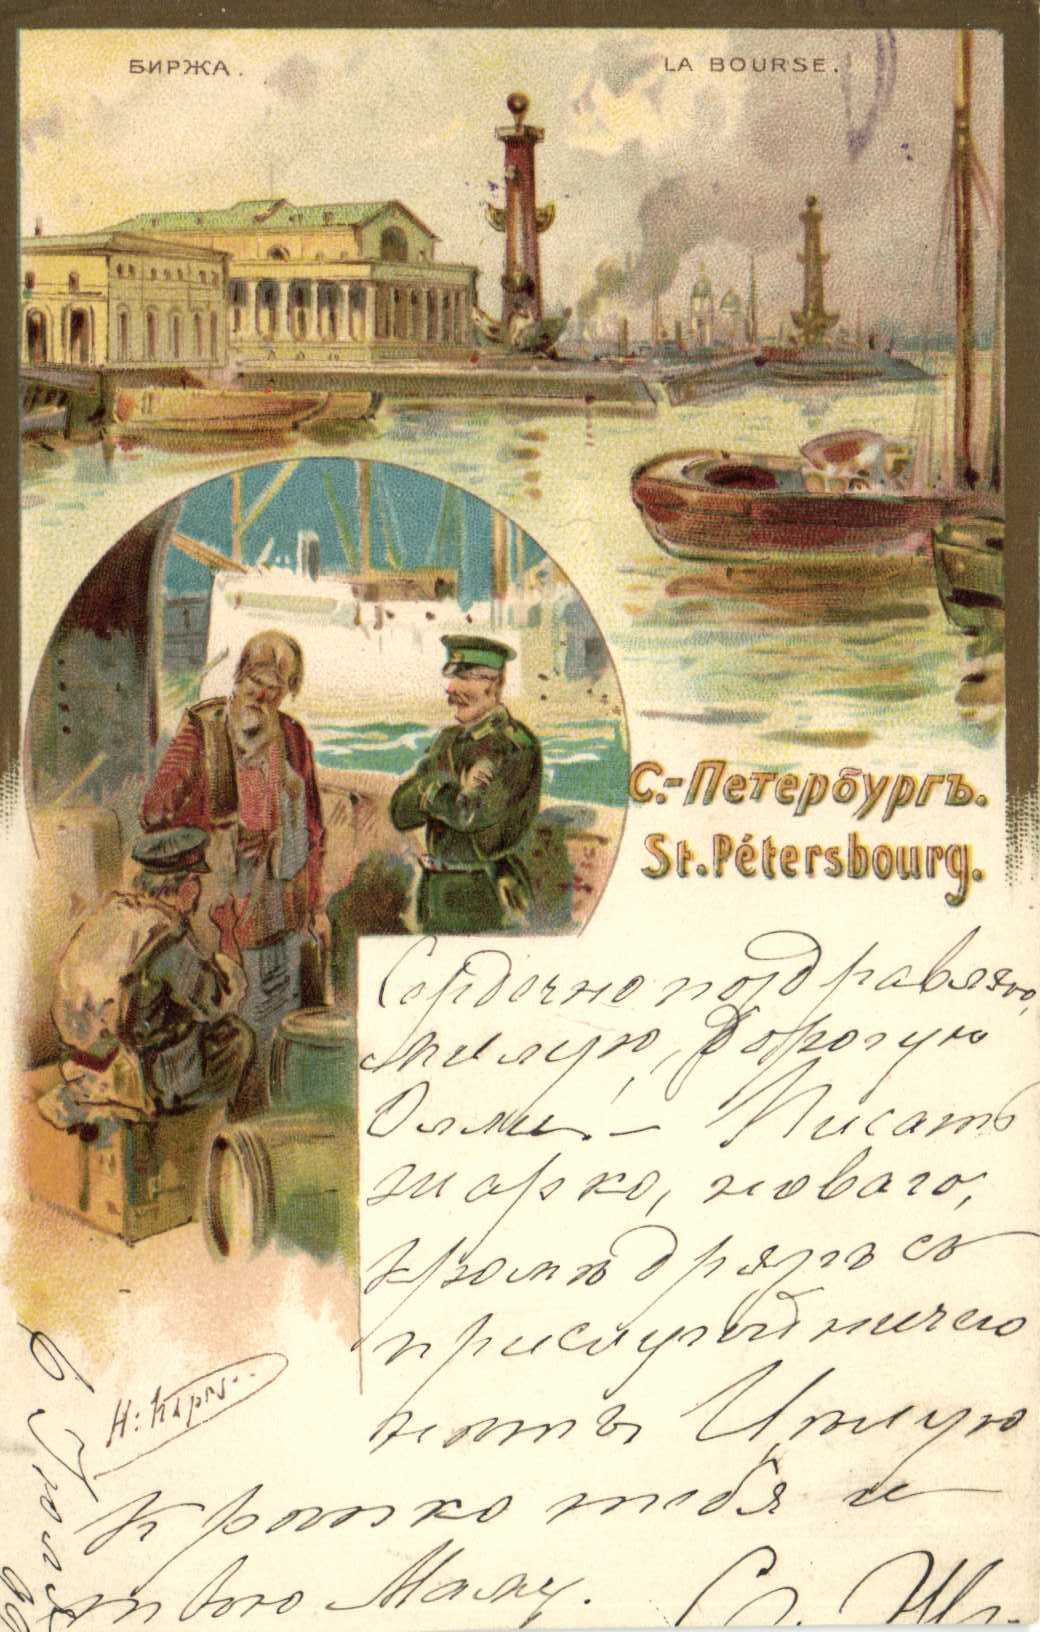 БИРЖА.
LA BOURSE.
С.-Петербургъ.
St. Pétersbourg.
Сердечно поздравляю,
милую, дорогую
Олли. — Писать
жарко, новаго,
кромѣ дрязгъ съ
прислугой ничего
нѣтъ Цѣлую
крѣпко тебя и
твою Маму.
6 Iюля